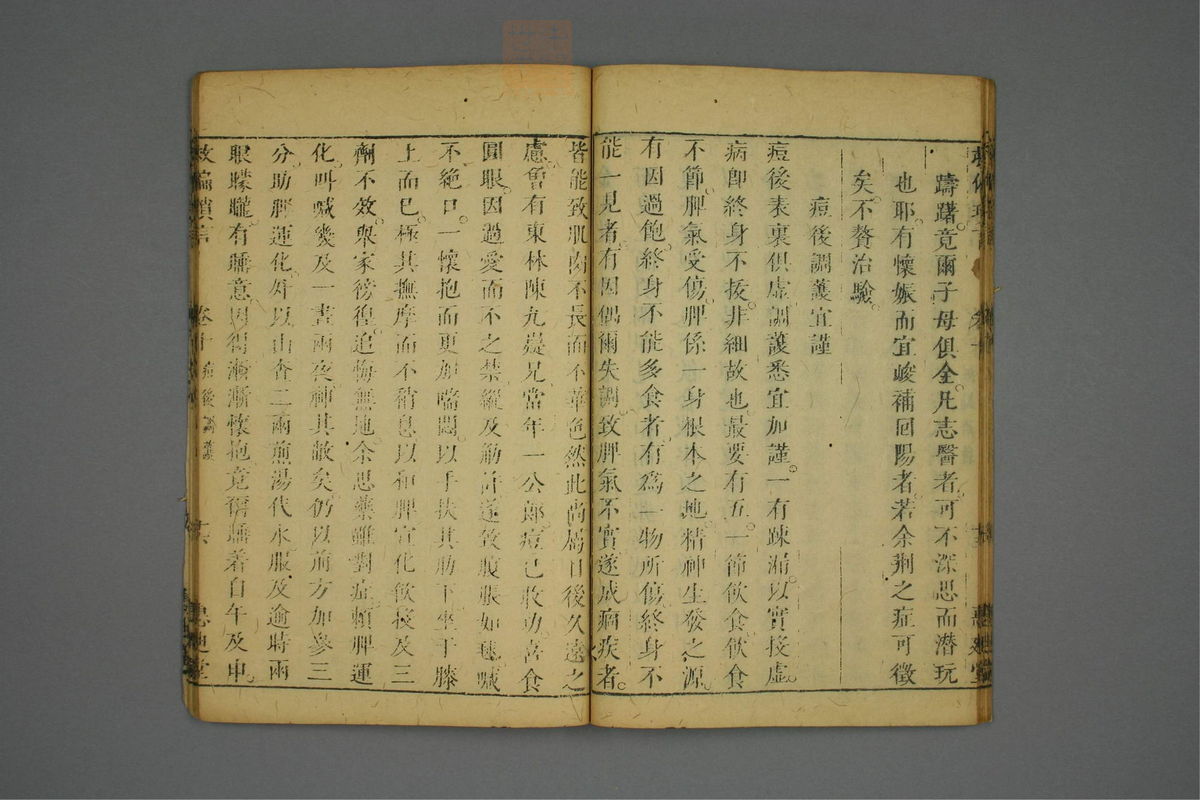 躊躇竟爾子母俱全凡志醫者可不深思而潛玩
也耶有懷娠而宜峻補回陽者若余荆之症可徵
矣不贅治驗
痘後調護宜謹
痘後表裏俱虛調護悉宜加謹一有踈漏以實投虛
病卽終身不拔非細故也最要有五一節飲食飲食
不節脾氣受傷脾係一身根本之地精神生發之源
有因過飽終身不能多食者有爲一物所傷終身不
能一見者有因偶爾失調致脾氣不實遂成痼疾者
皆能致肌肉不長面不華色然此尚屬日後久遠之
慮曾有東林陳九嶷兄當年一公郎痘已收功喜食
圓眼因過愛而不之禁繼及觔許遂致腹脹如毬喊
不絕口一懷抱而更加嘻悶以手扶其肋下坐于膝
上而已極其撫摩而不稍息以和脾宣化飲投及三
劑不效舉家徬徨追悔無地余思藥雖對症賴脾運
化叫喊幾及一晝兩夜神其散矣仍以前方加參三
分助脾運化外以山查二兩煎湯代水服及逾時兩
眼矇矓有𦗕意因得漸漸懷抱竟爾𦗕着自午及申
救偏瑣言 卷十 痘後調護 十六 惠迪堂